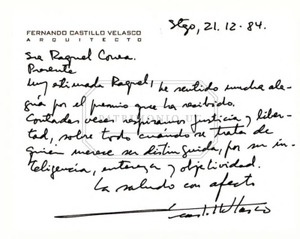 FERNANDO CASTILLO VELASCO
ARQUITECTO
Stgo, 21.12.84.
Sra Raquel Correa.
Presente
Muy estimada Raquel, he sentido mucha ale-
gría por el premio que ha recibido.
Contadas veces respiramos justicia y liber-
tad, sobre todo cuando se trata de
quien merece ser distinguida, por su in-
teligencia, entereza y objetividad.
La saludo con afecto